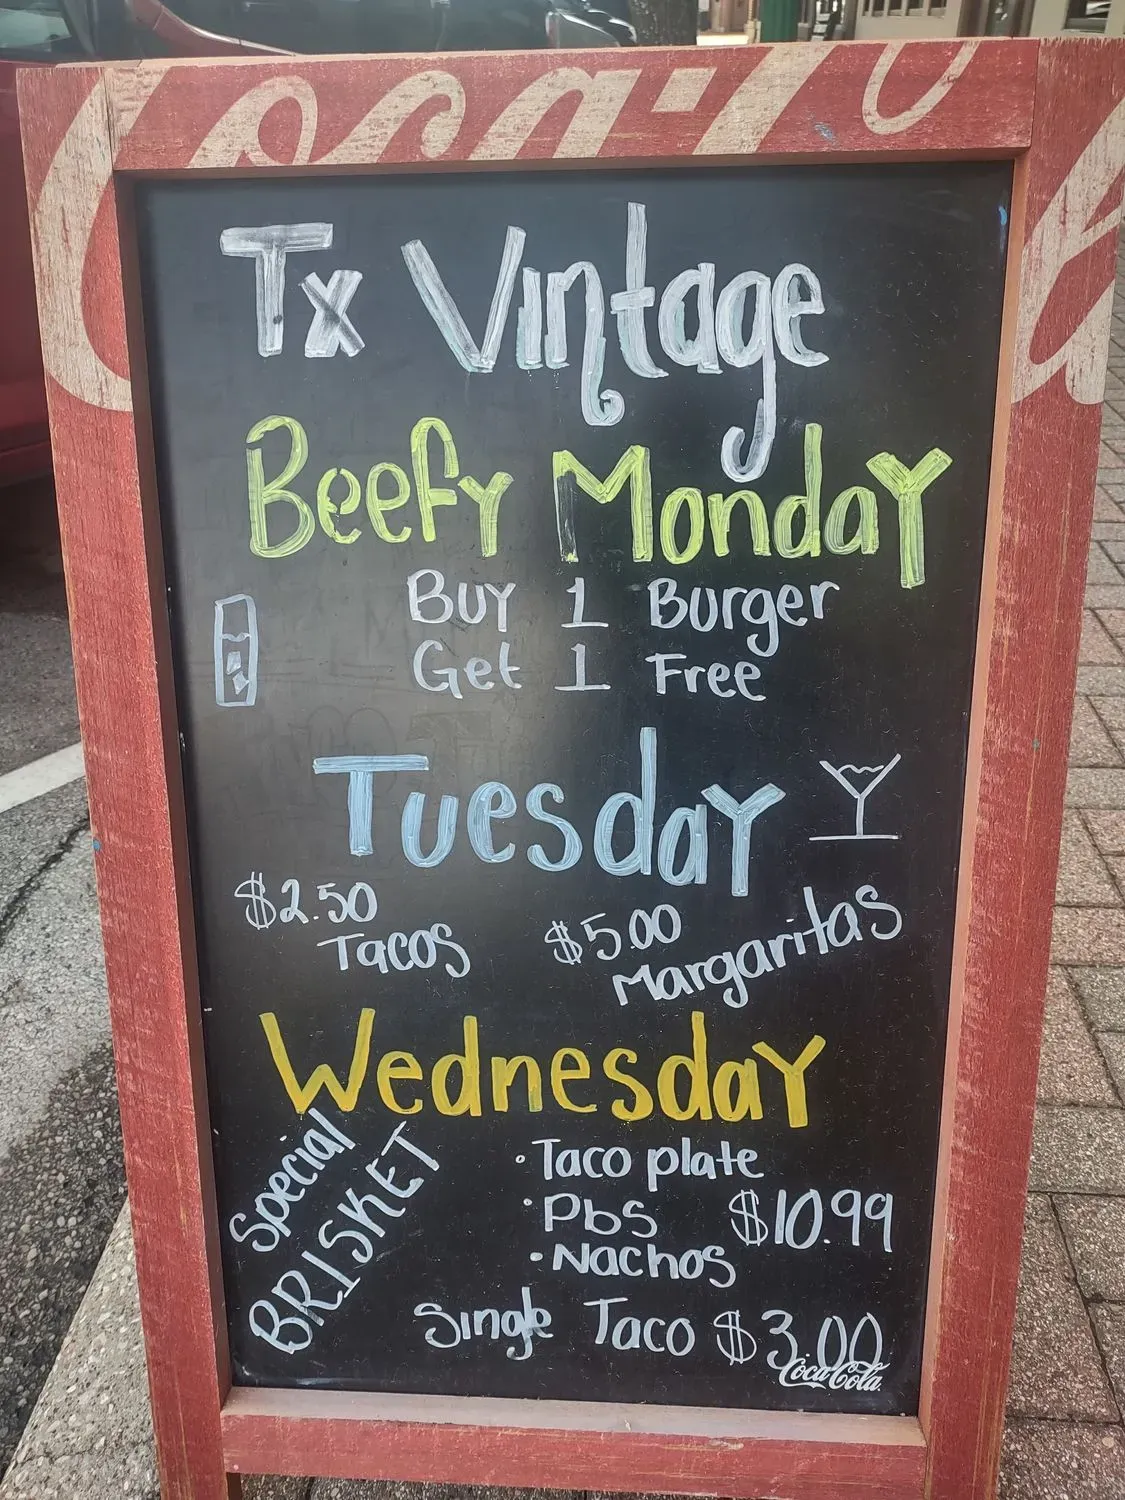 Coca-Co
Tx Vintage
Beefy Monday
Buy 1 Burger
Get 1 Free
Tuesday
$2.50
Tacos
$5.00
Margaritas
Wednesday
Special
BRISKET
· Taco plate
· Pbs $10.99
· Nachos
Single Taco $3.00
Coca-Cola